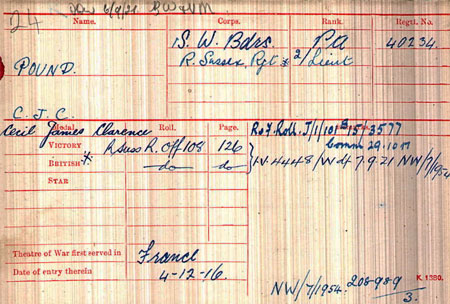 24
6/9/21 BW&VM
Name. Corps. Rank. Regtl. No.
S. W. Bdrs. Pte 40234.
POUND. R. Sussex. Rgt * 2/Lieut
C. J. C.
Cecil James Clarence
Medal. Roll. Page.
VICTORY R. Suss R. Off 108 126
R of Roll. J/1/101 B 15/3577
Comm 29.10.17
BRITISH * do do
IV. 4448/W df 7.9.21 NW/7/1954
STAR
Theatre of War first served in France
Date of entry therein 4-12-16.
K. 1380.
NW/7/1954. 208-98-9
3.